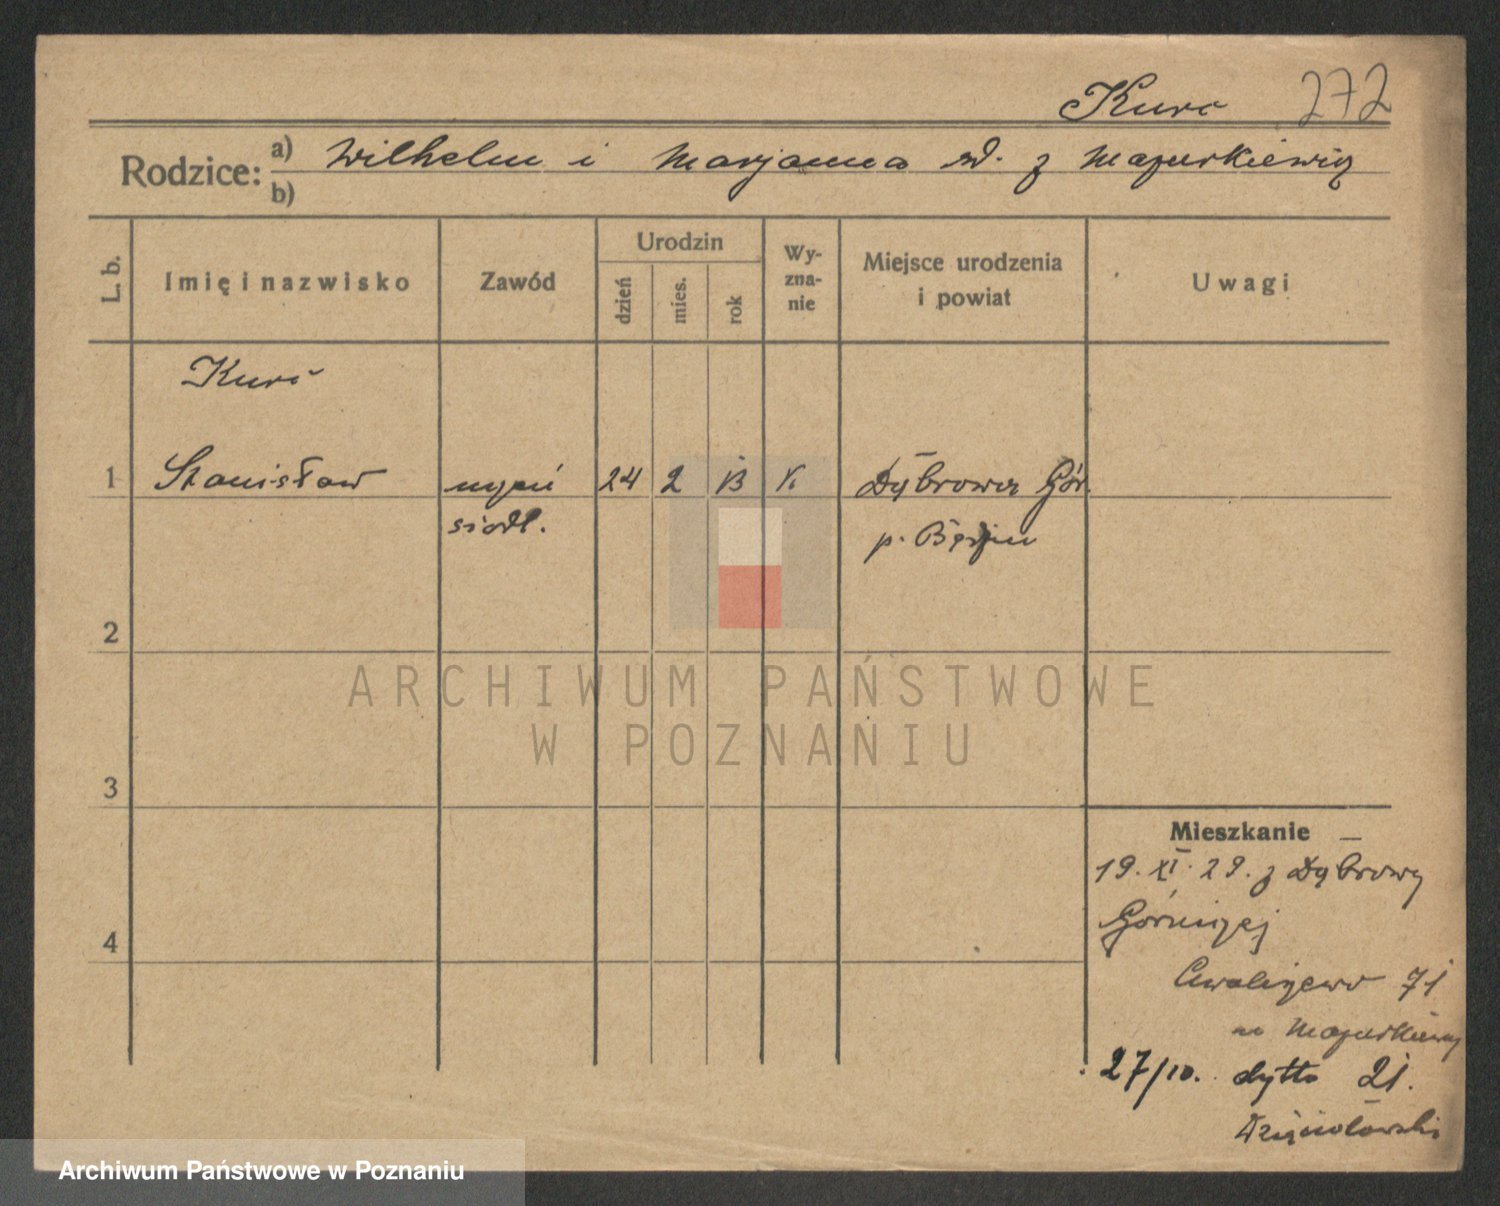 Kurc 272
Rodzice: a) Wilhelm i Marjanna rd. z Mazurkiewicz
b)
L. b.
Imię i nazwisko
Zawód
Urodzin
dzień
mies.
rok
Wy-
zna-
nie
Miejsce urodzenia
i powiat
Uwagi
Kurc
1 Stanisław uczeń 24 2 13 K Dąbrowa Gór.
siodł. p. Będzin
2
3
4
Mieszkanie
19. XI. 29. z Dąbrowy
Górniczej
71
m Mazurkiewicz
27/10. dytto 21.
Dzięciołowski
ARCHIWUM PAŃSTWOWE
W POZNANIU
Archiwum Państwowe w Poznaniu